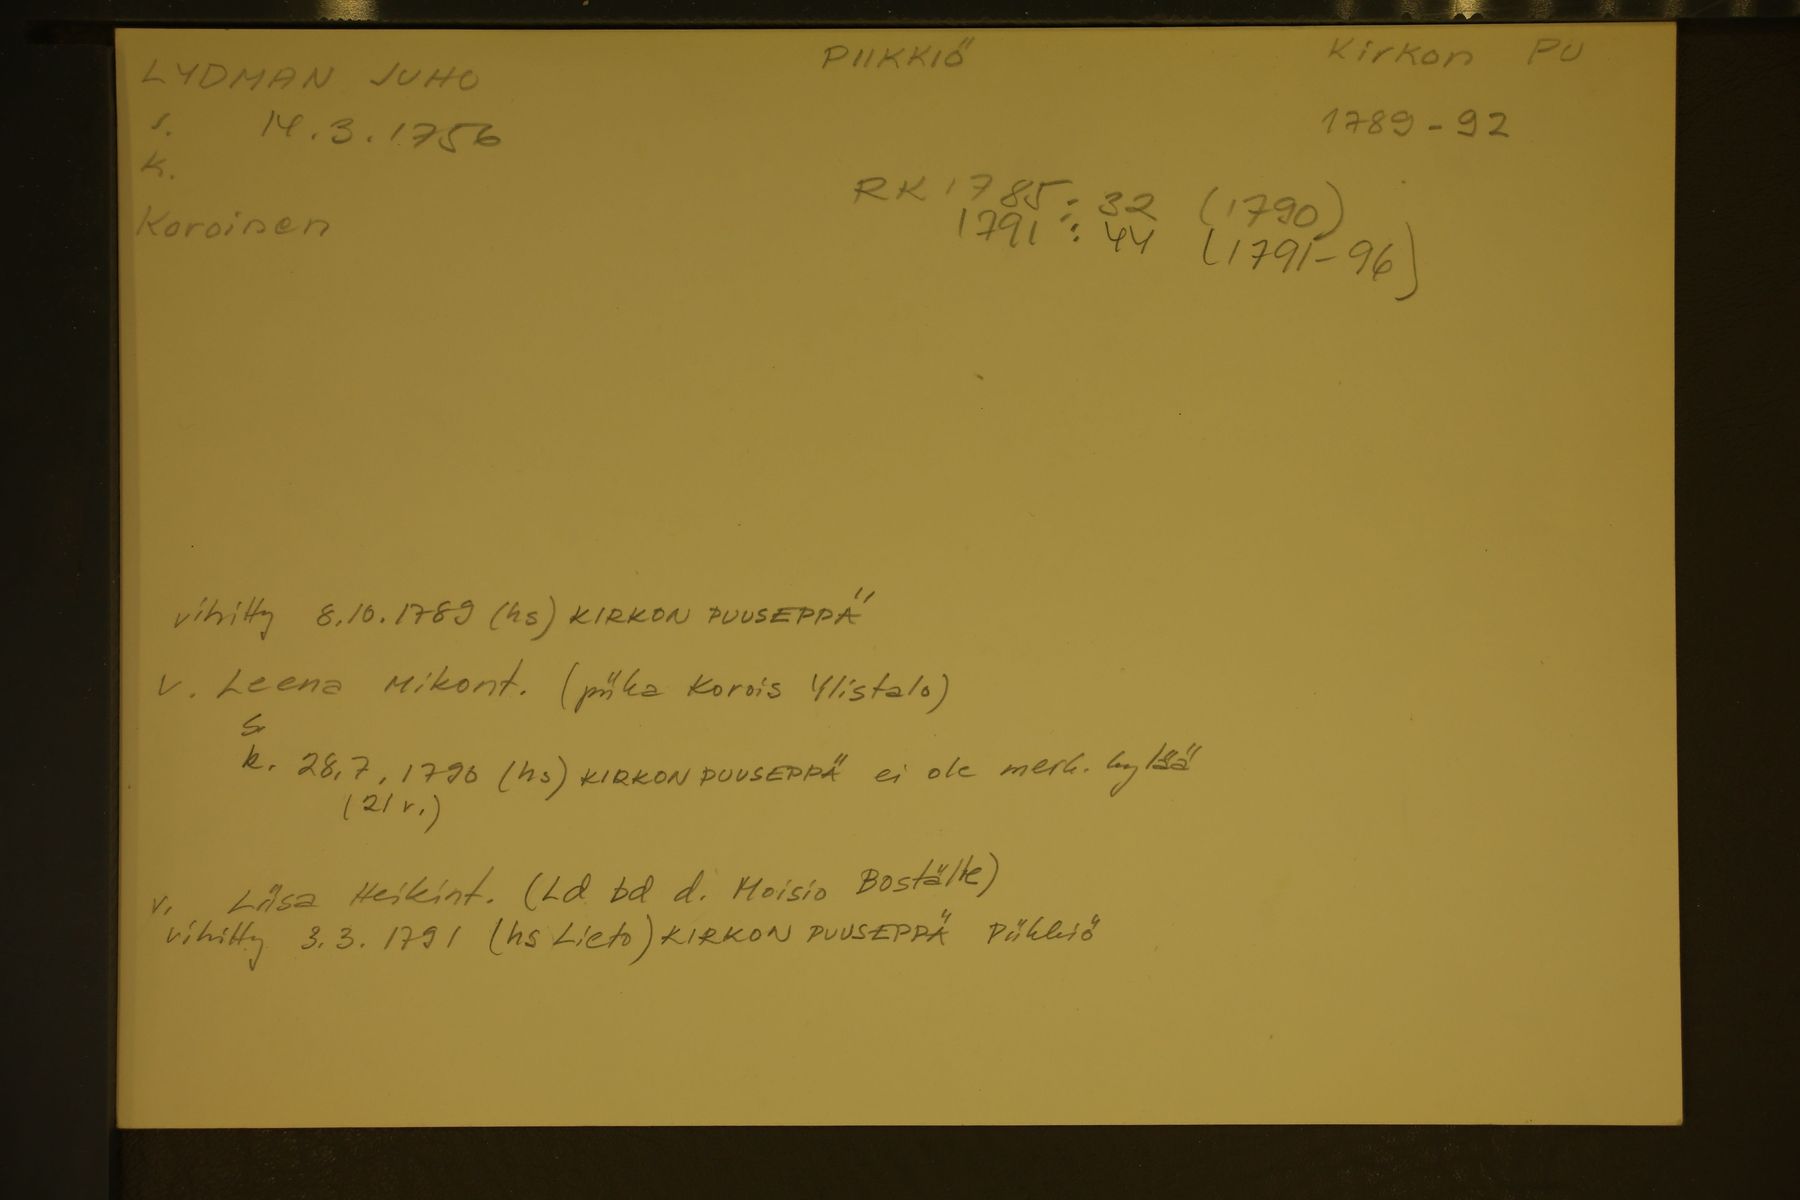 LYDMAN JUHO
PIIKKIÖ
Kirkon PU
s. 14.3.1756
1789-92
k.
RK 1785: 32 (1790)
Koroinen
1791: 44 (1791-96)
vihitty 8.10.1789 (hs) KIRKON PUUSEPPÄ
v. Leena Mikont. (piika Korois Ylistalo)
s.
k. 28.7.1790 (hs) KIRKON PUUSEPPÄ ei ole merk. kylää
(21 v.)
v. Liisa Heikint. (Ld bd d. Moisio Boställe)
vihitty 3.3.1791 (hs Lieto) KIRKON PUUSEPPÄ Piikkiö